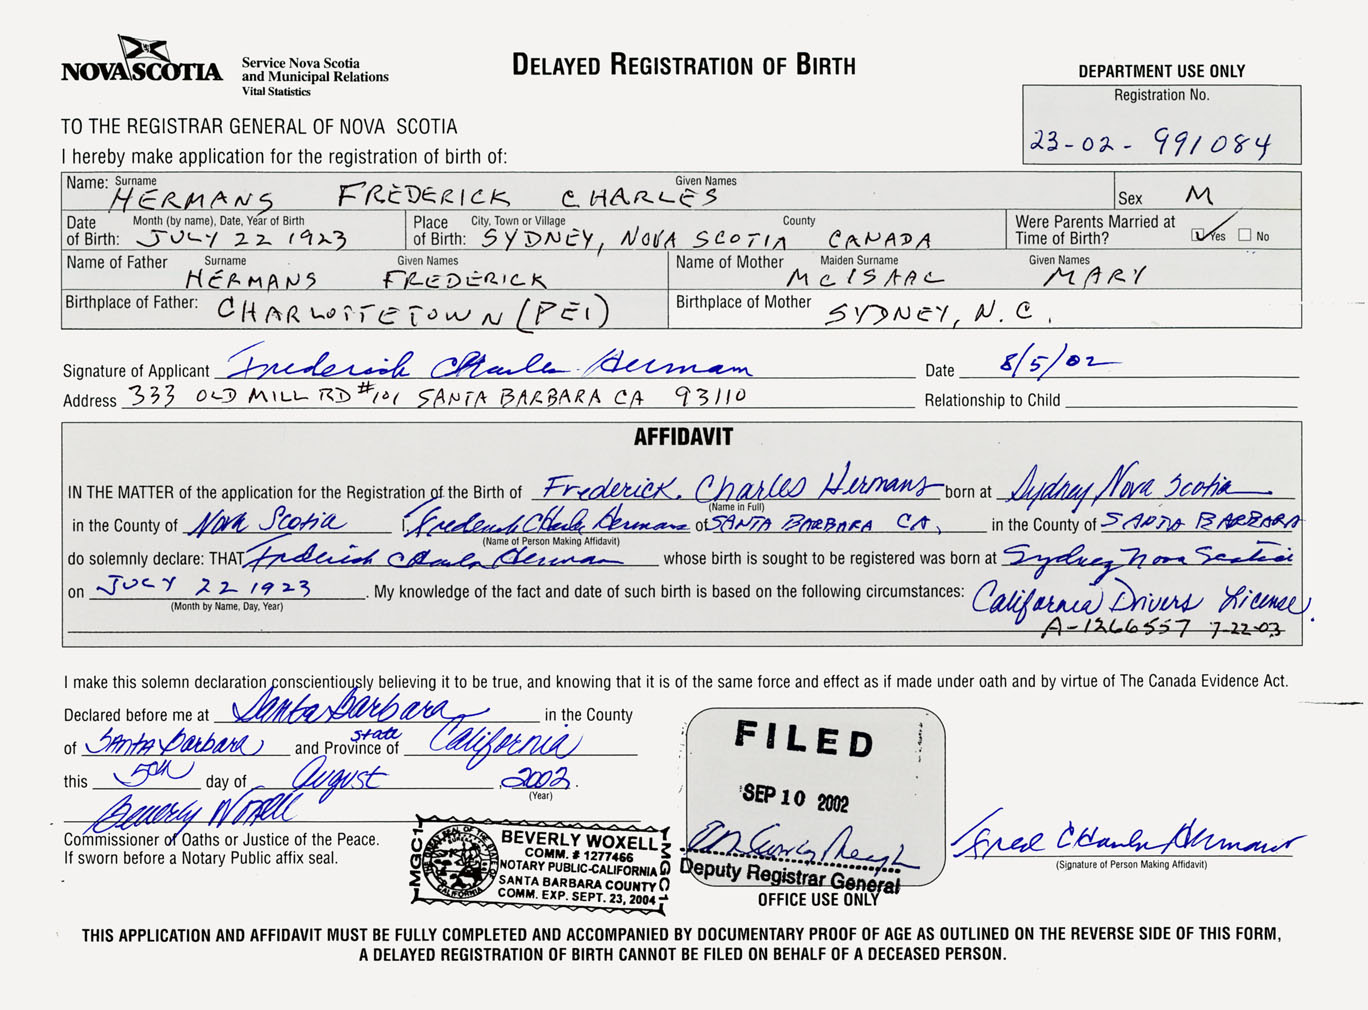 NOVA SCOTIA
Service Nova Scotia
and Municipal Relations
Vital Statistics
DELAYED REGISTRATION OF BIRTH
DEPARTMENT USE ONLY
Registration No.
23-02-991084
TO THE REGISTRAR GENERAL OF NOVA SCOTIA
I hereby make application for the registration of birth of:
Name: Surname Given Names
HERMANS FREDERICK CHARLES
Sex M
Date of Birth: Month (by name), Date, Year of Birth
JULY 22 1923
Place of Birth: City, Town or Village County
SYDNEY, NOVA SCOTIA CANADA
Were Parents Married at
Time of Birth? Yes No
Name of Father Surname Given Names
HERMANS FREDERICK
Name of Mother Maiden Surname Given Names
McISAAC MARY
Birthplace of Father: CHARLOTTETOWN (PEI)
Birthplace of Mother SYDNEY, N.C.
Signature of Applicant Frederick Charles Hermans
Date 8/5/02
Address 333 OLD MILL RD #101 SANTA BARBARA CA 93110
Relationship to Child
AFFIDAVIT
IN THE MATTER of the application for the Registration of the Birth of Frederick Charles Hermans born at Sydney Nova Scotia
(Name in Full)
in the County of Nova Scotia I, Frederick Charles Hermans of SANTA BARBARA CA, in the County of SANTA BARBARA
(Name of Person Making Affidavit)
do solemnly declare: THAT Frederick Charles Hermans whose birth is sought to be registered was born at Sydney Nova Scotia
on JULY 22 1923. My knowledge of the fact and date of such birth is based on the following circumstances: California Drivers License.
(Month by Name, Day, Year)
A-1266557 7-22-03
I make this solemn declaration conscientiously believing it to be true, and knowing that it is of the same force and effect as if made under oath and by virtue of The Canada Evidence Act.
Declared before me at Santa Barbara in the County
of Santa Barbara and Province of state California
this 5th day of August, 2002.
(Year)
Beverly Woxell
Commissioner of Oaths or Justice of the Peace.
If sworn before a Notary Public affix seal.
MGC1
BEVERLY WOXELL
COMM. # 1277466
NOTARY PUBLIC-CALIFORNIA
SANTA BARBARA COUNTY
COMM. EXP. SEPT. 23, 2004
MGC1
FILED
SEP 10 2002
Deputy Registrar General
OFFICE USE ONLY
Fred Charles Hermans
(Signature of Person Making Affidavit)
THIS APPLICATION AND AFFIDAVIT MUST BE FULLY COMPLETED AND ACCOMPANIED BY DOCUMENTARY PROOF OF AGE AS OUTLINED ON THE REVERSE SIDE OF THIS FORM,
A DELAYED REGISTRATION OF BIRTH CANNOT BE FILED ON BEHALF OF A DECEASED PERSON.